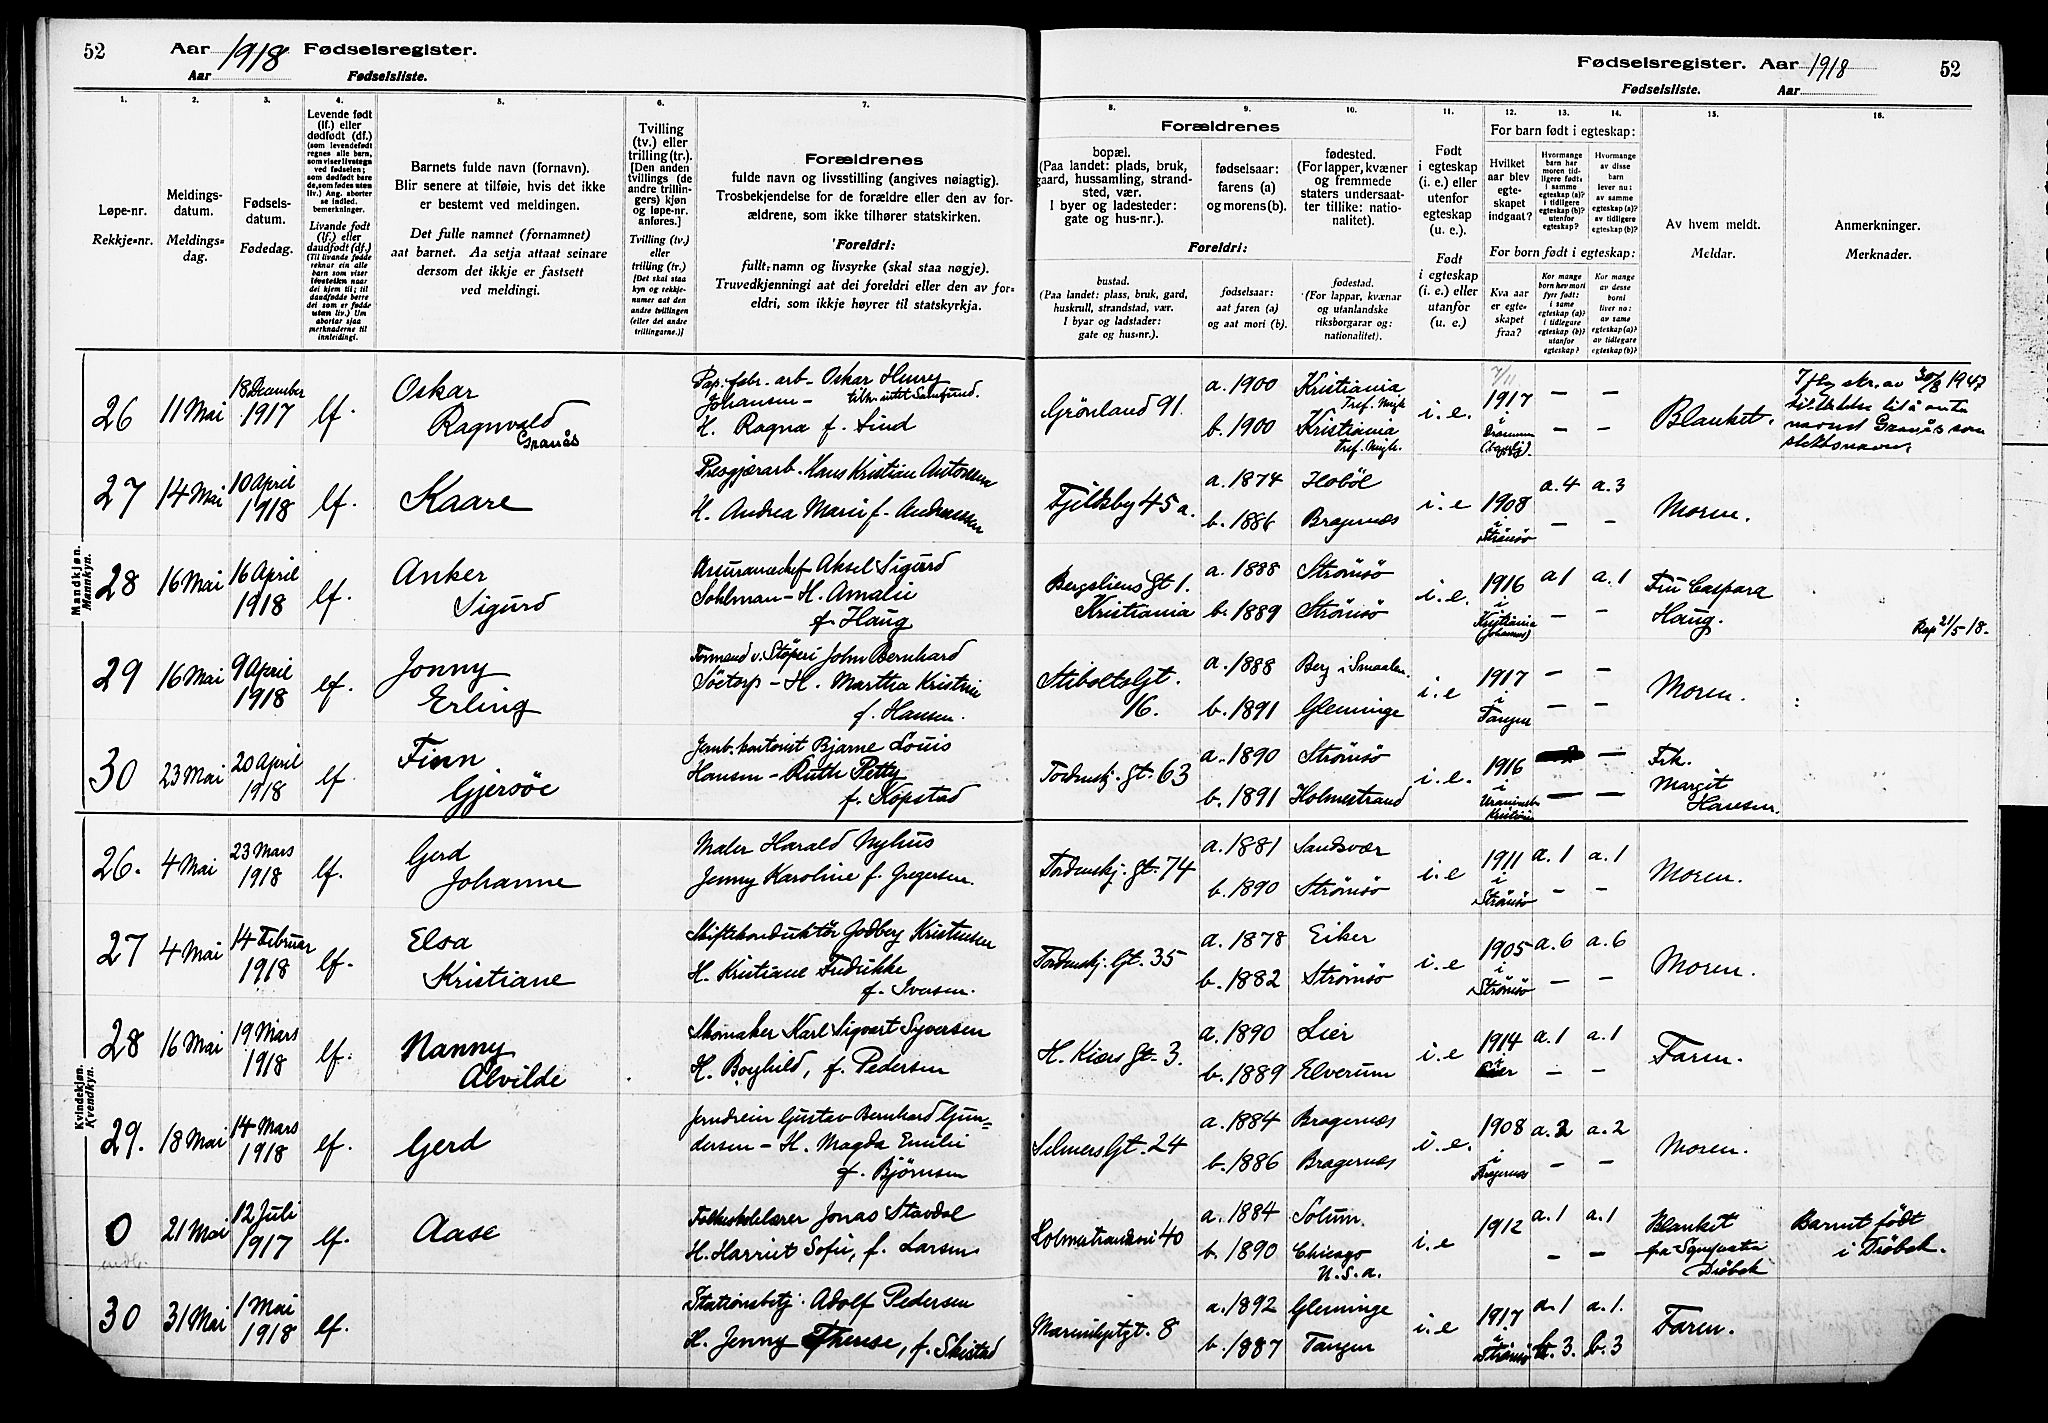 52 Aar 1918 Fødselsregister.
Aar Fødselsliste.
Fødselsregister. Aar 1918 52
Fødselsliste. Aar
1. 2. 3. 4. 5. 6. 7.
Løpe-nr.
Rekkje-nr.
Meldings-
datum.
Meldings-
dag.
Fødsels-
datum.
Fødedag.
Levende født
(lf.) eller
dødfødt (df.)
(som levendefødt
regnes alle barn,
som viser livstegn
ved fødselen;
som dødfødt bare
de, som fødes uten
liv.) Ang. aborter
se indled.
bemerkninger.
Livande født
(lf.) eller
daudfødt (df.)
Barnets fulde navn (fornavn).
Blir senere at tilføie, hvis det ikke
er bestemt ved meldingen.
Det fulle namnet (fornamnet)
aat barnet. Aa setja attaat seinare
dersom det ikkje er fastsett
ved meldingi.
Tvilling
(tv.) eller
trilling (tr.).
[Den anden
tvillings (de
andre trillin-
gers) kjøn
og løpe-nr.
anføres.]
Tvilling (tv.)
eller
trilling (tr.)
[Det skal staa
kyn og rekkje-
numer aat den
andre tvillingen
(eller dei andre
trillingarne.)]
Forældrenes
fulde navn og livsstilling (angives nøiagtig).
Trosbekjendelse for de forældre eller den av for-
ældrene, som ikke tilhører statskirken.
Foreldri:
fullt namn og livsyrke (skal staa nøgje).
Truvedkjenningi aat dei foreldri eller den av for-
eldri, som ikkje høyrer til statskyrkja.
8. 9. 10. 11. 12. 13. 14. 15. 16.
Forældrenes
bopæl.
(Paa landet: plads, bruk,
gaard, hussamling, strand-
sted, vær.
I byer og ladesteder:
gate og hus-nr.).
fødselsaar:
farens (a)
og morens (b).
fødested.
(For lapper, kvæner
og fremmede
staters undersaat-
ter tillike: natio-
nalitet).
Foreldri:
bustad.
(Paa landet: plass, bruk, gard,
huskrull, strandstad, vær.
I byar og ladstader:
gate og hus-nr.).
fødselsaar:
aat faren (a)
og aat mori (b).
fødestad.
(For lappar, kvænar
og utanlandske
riksborgarar og:
nationalitet).
Født
i egteskap
(i. e.) eller
utenfor
egteskap
(u. e.).
Født
i egteskap
(i. e.) eller
utanfor
(u. e.).
For barn født i egteskap:
Hvilket
aar blev
egte-
skapet
indgaat?
Hvormange
barn har
moren tid-
ligere født:
i samme
egteskap (a)?
i tidligere
egteskap (b)?
utenfor
egteskap?
Hvormange
av disse
barn
lever nu:
av samme
egteskap (a)?
av tidligere
egteskap (b)?
For born født i egteskap:
Kva aar
er egte-
skapet
fraa?
Kor mange
born hev mori
fyrr født:
i same
egteskap (a)?
i tidlegare
egteskap (b)?
utanfor
egteskap?
Kor mange
av desse
borni
liver no:
av same
egteskap (a)?
av tidlegare
egteskap (b)?
Av hvem meldt.
Meldar.
Anmerkninger.
Merknader.
Mandkjøn.
Mannkyn.
26 11 Mai 18 December 1917 lf. Oskar Ragnvald Granås
Pap. fabr. arb. Oskar Henry
Johansen - tilh. intet Samfund.
H. Ragna f. Lind
Grönland 91. a. 1900 Kristiania b. 1900 Kristiania i. e. 7/11 1917 i Drammen — — — — Blanket.
30/8 1947
Granås som
slektsnavn.
27 14 Mai 10 April 1918 lf. Kaare
Hans Kristian Antonsen
H. Andrea Marie f. Andreassen
Fjeldsby 45 a. a. 1874 Hobøl b. 1886 Bragernæs i. e 1908 i Strömsö a. 4 a. 3 — — Moren.
28 16 Mai 16 April 1918 lf. Anker Sigurd
Assurancechef Aksel Sigurd
Sohlman - H. Amalie
f. Haug
Bergsliens Gt 1.
Kristiania
a. 1888 Strömsö b. 1889 Strömsö i. e. 1916 i Kristiania (Johannes) a 1 a. 1 — — Fru Caspara
Haug. Rap 21/5 18.
29 16 Mai 9 April 1918 lf. Jonny Erling
Formand v. Støperi John Bernhard
Söetorp - H. Martha Kristine
f. Hansen.
Stibolts Gt.
16.
a. 1888 Berg i Smaalen. b. 1891 Glemminge i. e 1917 i Tangen — — — — Moren.
30 23 Mai 20 April 1918 lf Finn Gjersöe
Jernb. kontorist Bjarne Louis
Hansen - Ruth Petty
f. Kopstad
Tordenskj. Gt. 63 a. 1890 Strömsö b. 1891 Holmestrand i. e. 1916 i Uranienb. Kristiania — — — Frk.
Margit
Hansen.
Kvindekjøn.
Kvendkyn.
26. 4 Mai 23 Mars 1918 lf. Gerd Johanne
Maler Harald Nyhus
Jenny Karoline f. Gregersen.
Tordenskj. Gt. 74 a. 1881 Sandsvær b. 1890 Strömsö i. e 1911 i Strömsö a. 1 a. 1 — — Moren.
27 4 Mai 14 Februar 1918 lf. Elsa Kristiane
Skiftekonduktör Godberg Kristensen
H. Kristiane Fredrikke
f. Iversen.
Tordenskj. Gt. 35 a. 1878 Eiker b. 1882 Strömsö i. e 1905 i Strömsö a. 6 a. 6 — — Moren.
28 16 Mai 19 Mars 1918 lf. Nanny Alvilde
Skomaker Karl Sigvart Syversen
H. Borghild, f. Pedersen
H. Kiærs Gt. 3. a. 1890 Lier b. 1889 Elverum i. e 1914 i Lier a. 1 a. 1 — — Faren.
29. 18 Mai 14 Mars 1918 lf. Gerd
Jerndreier Gustav Bernhard Gun-
dersen - H. Magda Emilie
f. Bjørnsen
Selmers Gt. 24 a. 1884 Bragernæs b. 1886 Bragernæs i. e. 1908 i Bragernæs a. 2 a. 2 — — Moren.
0 21 Mai 12 Juli 1917 lf. Aase
Folkeskolelærer Jonas Stavdal
H. Harriet Sofie, f. Larsen
Holmestrandsvei 40 a. 1884 Solum. b. 1890 Chicago U. S. a. i. e 1912 a. 1 a. 1 — — Blanket
fra Sognepræsten
Dröbak
Barnet født
i Dröbak.
30 31 Mai 1 Mai 1918 lf
Stationsbetj. Adolf Pedersen
H. Jenny Therese, f. Skistad
Marienlystgt. 8 a. 1892 Glemminge b. 1887 Tangen i. e 1917 i Strömsö a. 1 a. 1. b. 3. b. 3 Faren.